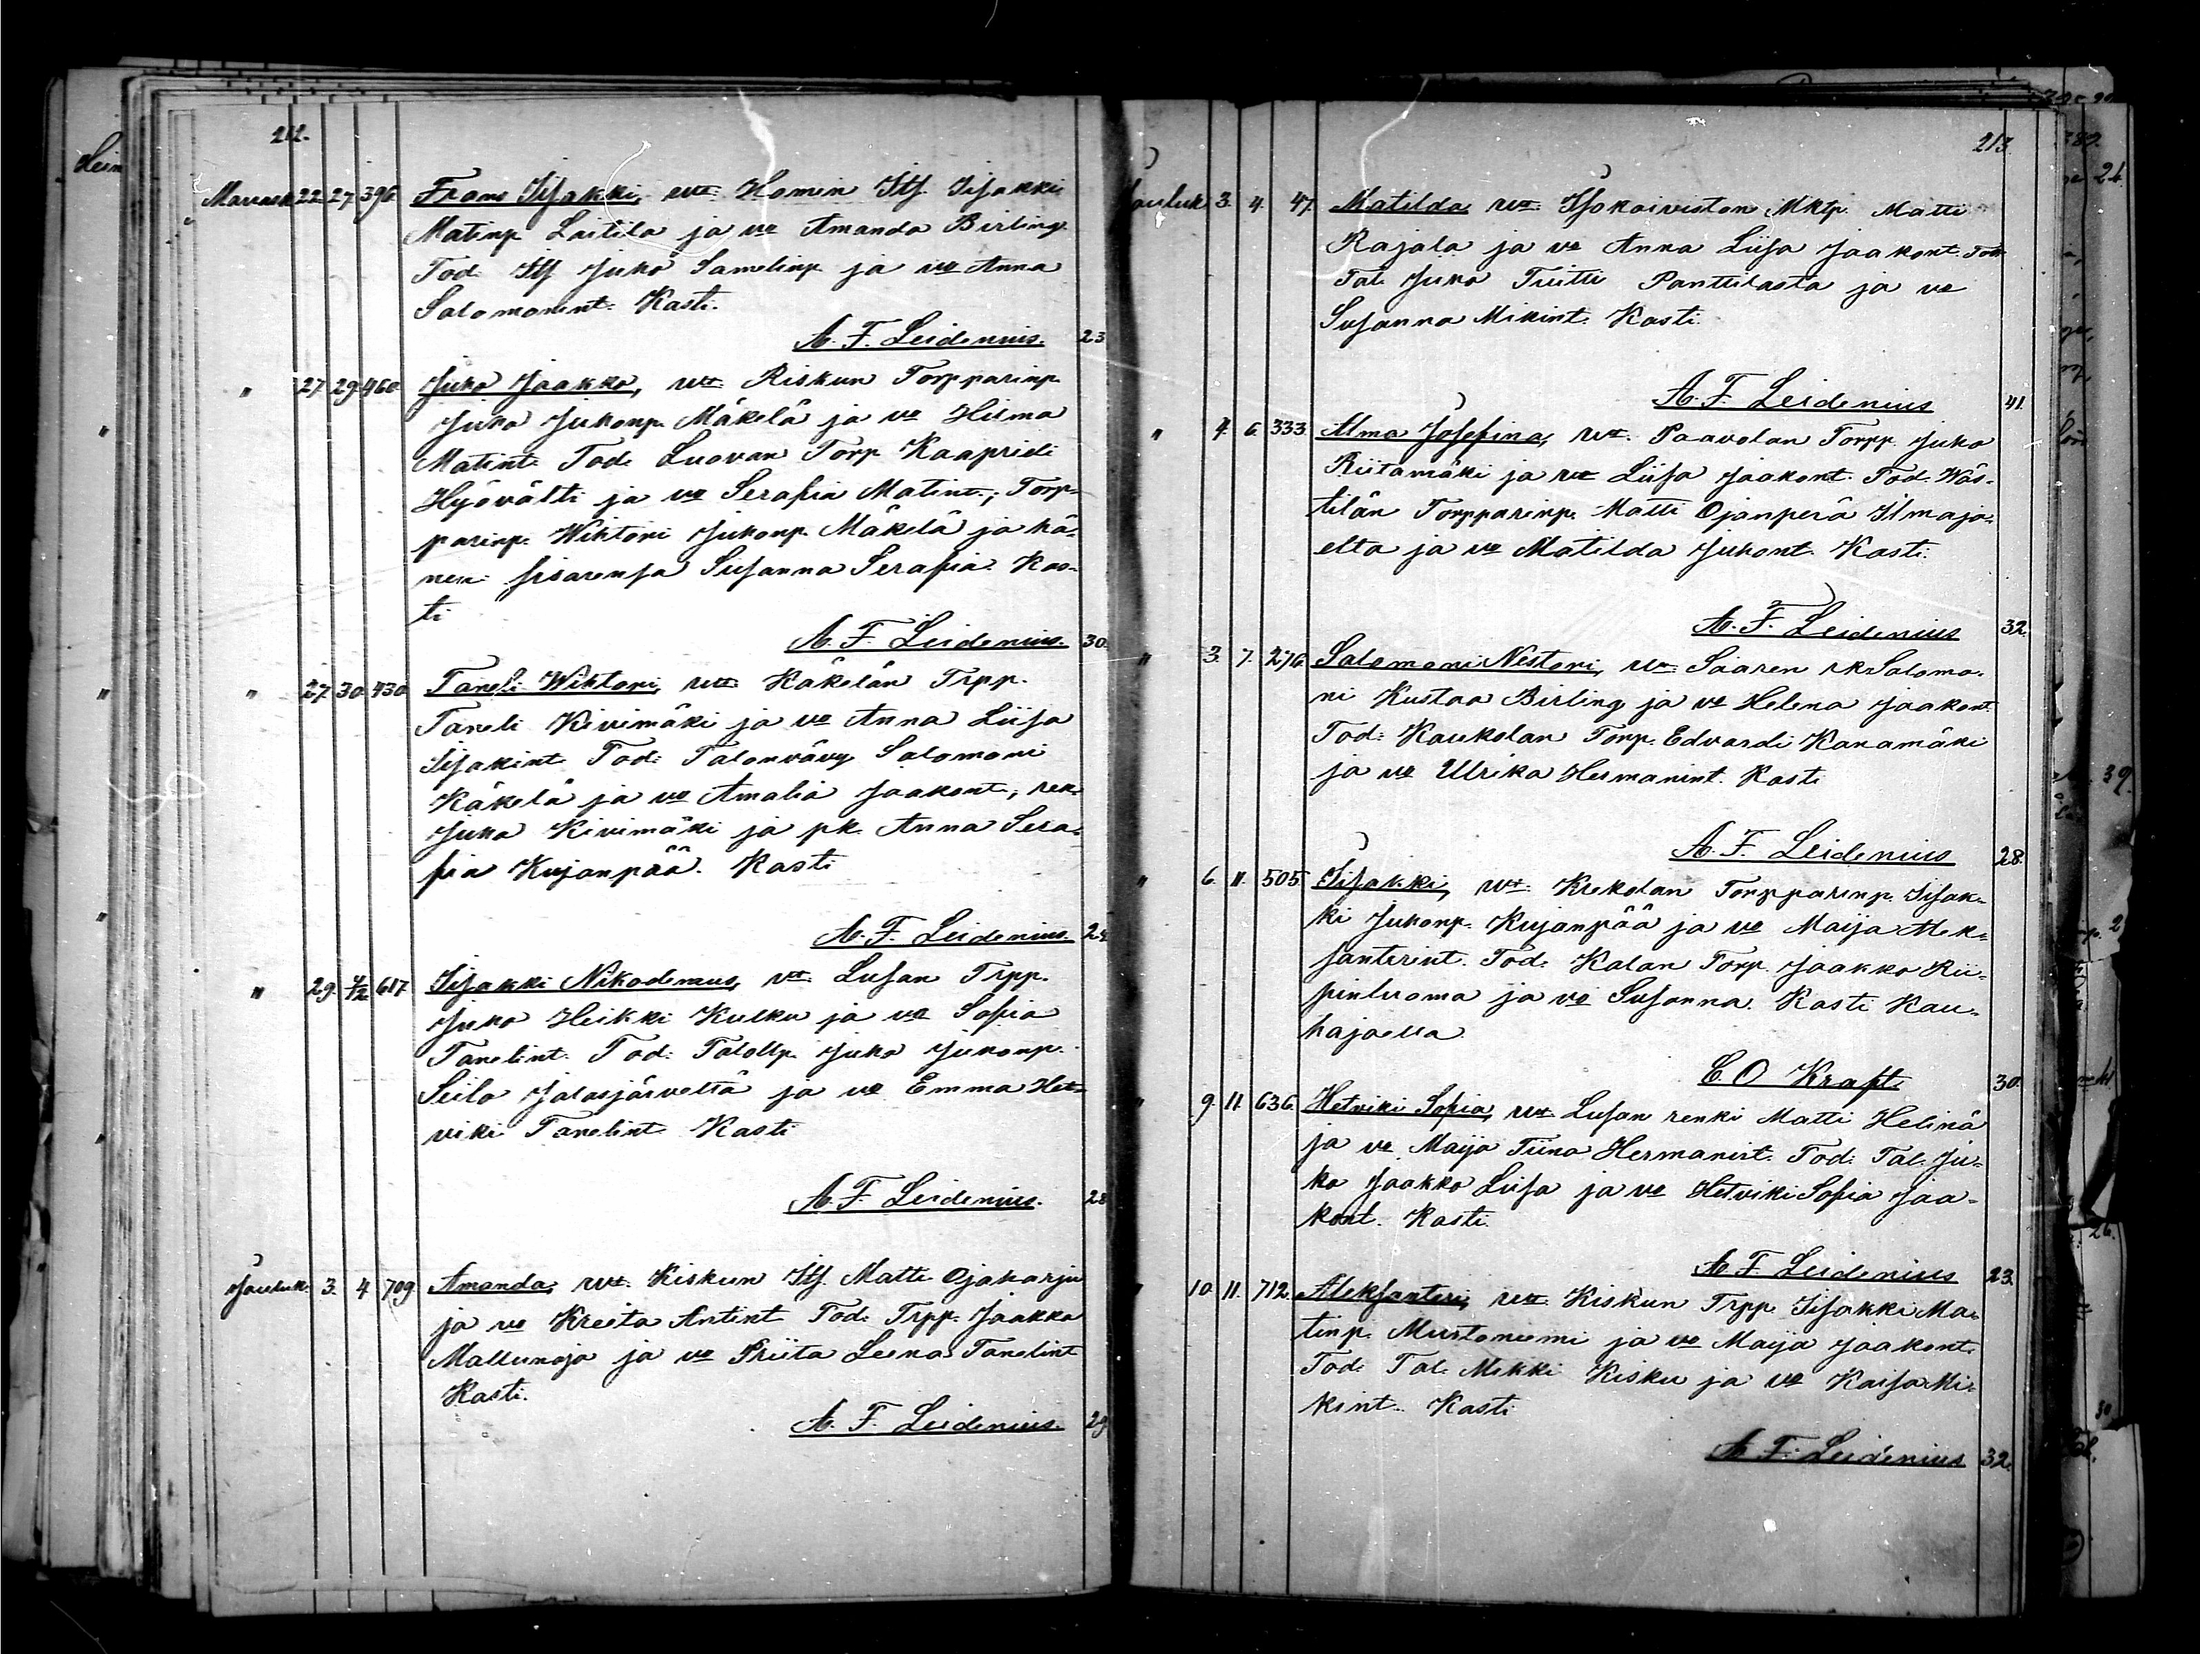 212.
Marrask. 22. 27. 396 Frans Iisakki, vt. Homen Itf. Iisakki
Matinp. Laitila ja vo Amanda Birling.
Tod. Itf Juho Samelinp. ja vo Anna
Salomonint. Kasti.
A. F. Leidenius. 23
" 27. 29. 460 Juho Jaakko, vt. Riskun Torpparinp.
Juho Juhonp. Mäkelä ja vo Hilma
Matint. Tod. Luovan Torp. Kaapriel
Hyövälti ja vo Serafia Matint.; Torp-
parinp. Wihtori Juhonp. Mäkelä ja hä-
nen sisarensa Susanna Serafia. Kas-
ti
A. F. Leidenius. 30.
" 27. 30. 430 Taneli Wihtori, vt. Käkelän Trpp.
Taneli Kivimäki ja vo Anna Liisa
Iisakint. Tod. Talonvävy Salomoni
Käkelä ja vo Amalia Jaakont.; renk.
Juho Kivimäki ja pk. Anna Sera-
fia Kujanpää. Kasti
A. F. Leidenius. 24
" 29. 4/12 617 Iisakki Nikodemus, vt. Lusan Trpp.
Juho Heikki Kulku ja vo Sofia
Tanelint. Tod. Talollp. Juho Juhonp.
Seilo Jalasjärveltä ja vo Emma Het-
viki Tanelint. Kasti
A. F. Leidenius. 28
Jouluk. 3. 4. 709 Amanda, vt. Kiskun Itf. Matti Ojaharju
ja vo Kreeta Antint. Tod. Trpp. Jaakko
Mallunoja ja vo Priita Leena Tanelint
Kasti.
A. F. Leidenius. 29
213.
Jouluk. 3. 4. 47. Matilda, vt. Isokoiviston Mktp. Matti
Rajala ja vo Anna Liisa Jaakont. Tod.
Tal. Juho Triitti Panttilasta ja vo
Susanna Mikint. Kasti
A. F. Leidenius 41.
" 4. 6. 333. Alma Josefina, vt. Paavolan Torpp. Juho
Riitamäki ja vo Liisa Jaakont. Tod. Wäs-
tilän Torpparinp. Matti Ojanperä Ilmajo-
elta ja vo Matilda Juhont. Kasti.
A. F. Leidenius 32.
" 3. 7. 276. Salomoni Nestori, vt. Saaren rk Salomo-
ni Kustaa Birling ja vo Helena Jaakont.
Tod. Kaukolan Torp. Edvardi Kanamäki
ja vo Ulrika Hermanint. Kasti
A. F. Leidenius 28.
" 6. 11. 505 Iisakki, vt. Krekolan Torpparinp. Iisak-
ki Juhonp. Kujanpää ja vo Maija Alek-
santerint. Tod. Kalan Torp. Jaakko Rii-
pinluoma ja vo Susanna. Kasti Kau-
hajoella
C. O Kraft. 30.
" 9. 11. 636. Hetviki Sofia, vt. Lusan renki Matti Helinä
ja vo Maija Tiina Hermanint. Tod. Tal. Ju-
ho Jaakko Luisa ja vo Hetviki Sofia Jaa-
kont. Kasti.
A. F. Leidenius 23.
" 10. 11. 712. Aleksanteri, vt. Kiskun Trpp. Iisakki Ma-
tinp. Mustoneemi ja vo Maija Jaakont.
Tod. Tal. Mikki Kisku ja vo Kaisa Mi-
kint. Kasti
A. F. Leidenius 32.